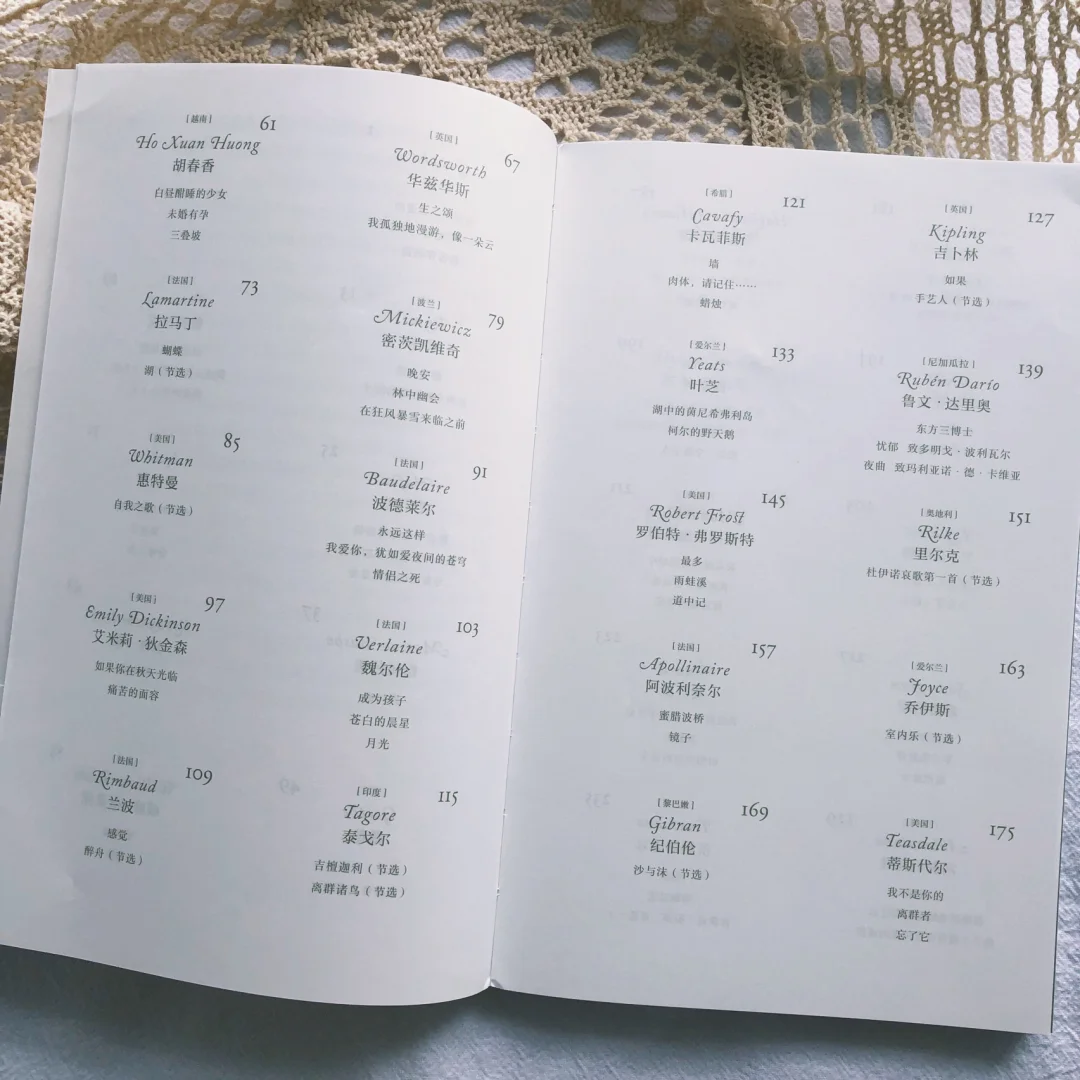 [越南]
61
Ho Xuan Huong
胡春香
白昼酣睡的少女
未婚有孕
三叠坡
[英国]
67
Wordsworth
华兹华斯
生之颂
我孤独地漫游,像一朵云
[法国]
73
Lamartine
拉马丁
蝴蝶
湖(节选)
[波兰]
79
Mickiewicz
密茨凯维奇
晚安
林中幽会
在狂风暴雪来临之前
[美国]
85
Whitman
惠特曼
自我之歌(节选)
[法国]
91
Baudelaire
波德莱尔
永远这样
我爱你,犹如爱夜间的苍穹
情侣之死
[美国]
97
Emily Dickinson
艾米莉·狄金森
如果你在秋天光临
痛苦的面容
[法国]
103
Verlaine
魏尔伦
成为孩子
苍白的晨星
月光
[法国]
109
Rimbaud
兰波
感觉
醉舟(节选)
[印度]
115
Tagore
泰戈尔
吉檀迦利(节选)
离群诸鸟(节选)
[希腊]
121
Cavafy
卡瓦菲斯
墙
肉体,请记住……
蜡烛
[英国]
127
Kipling
吉卜林
如果
手艺人(节选)
[爱尔兰]
133
Yeats
叶芝
湖中的茵尼希弗利岛
柯尔的野天鹅
[尼加瓜拉]
139
Rubén Darío
鲁文·达里奥
东方三博士
忧郁 致多明戈·波利瓦尔
夜曲 致玛利亚诺·德·卡维亚
[美国]
145
Robert Frost
罗伯特·弗罗斯特
最多
雨蛙溪
道中记
[奥地利]
151
Rilke
里尔克
杜伊诺哀歌第一首(节选)
[法国]
157
Apollinaire
阿波利奈尔
蜜腊波桥
镜子
[爱尔兰]
163
Joyce
乔伊斯
室内乐(节选)
[黎巴嫩]
169
Gibran
纪伯伦
沙与沫(节选)
[美国]
175
Teasdale
蒂斯代尔
我不是你的
离群者
忘了它